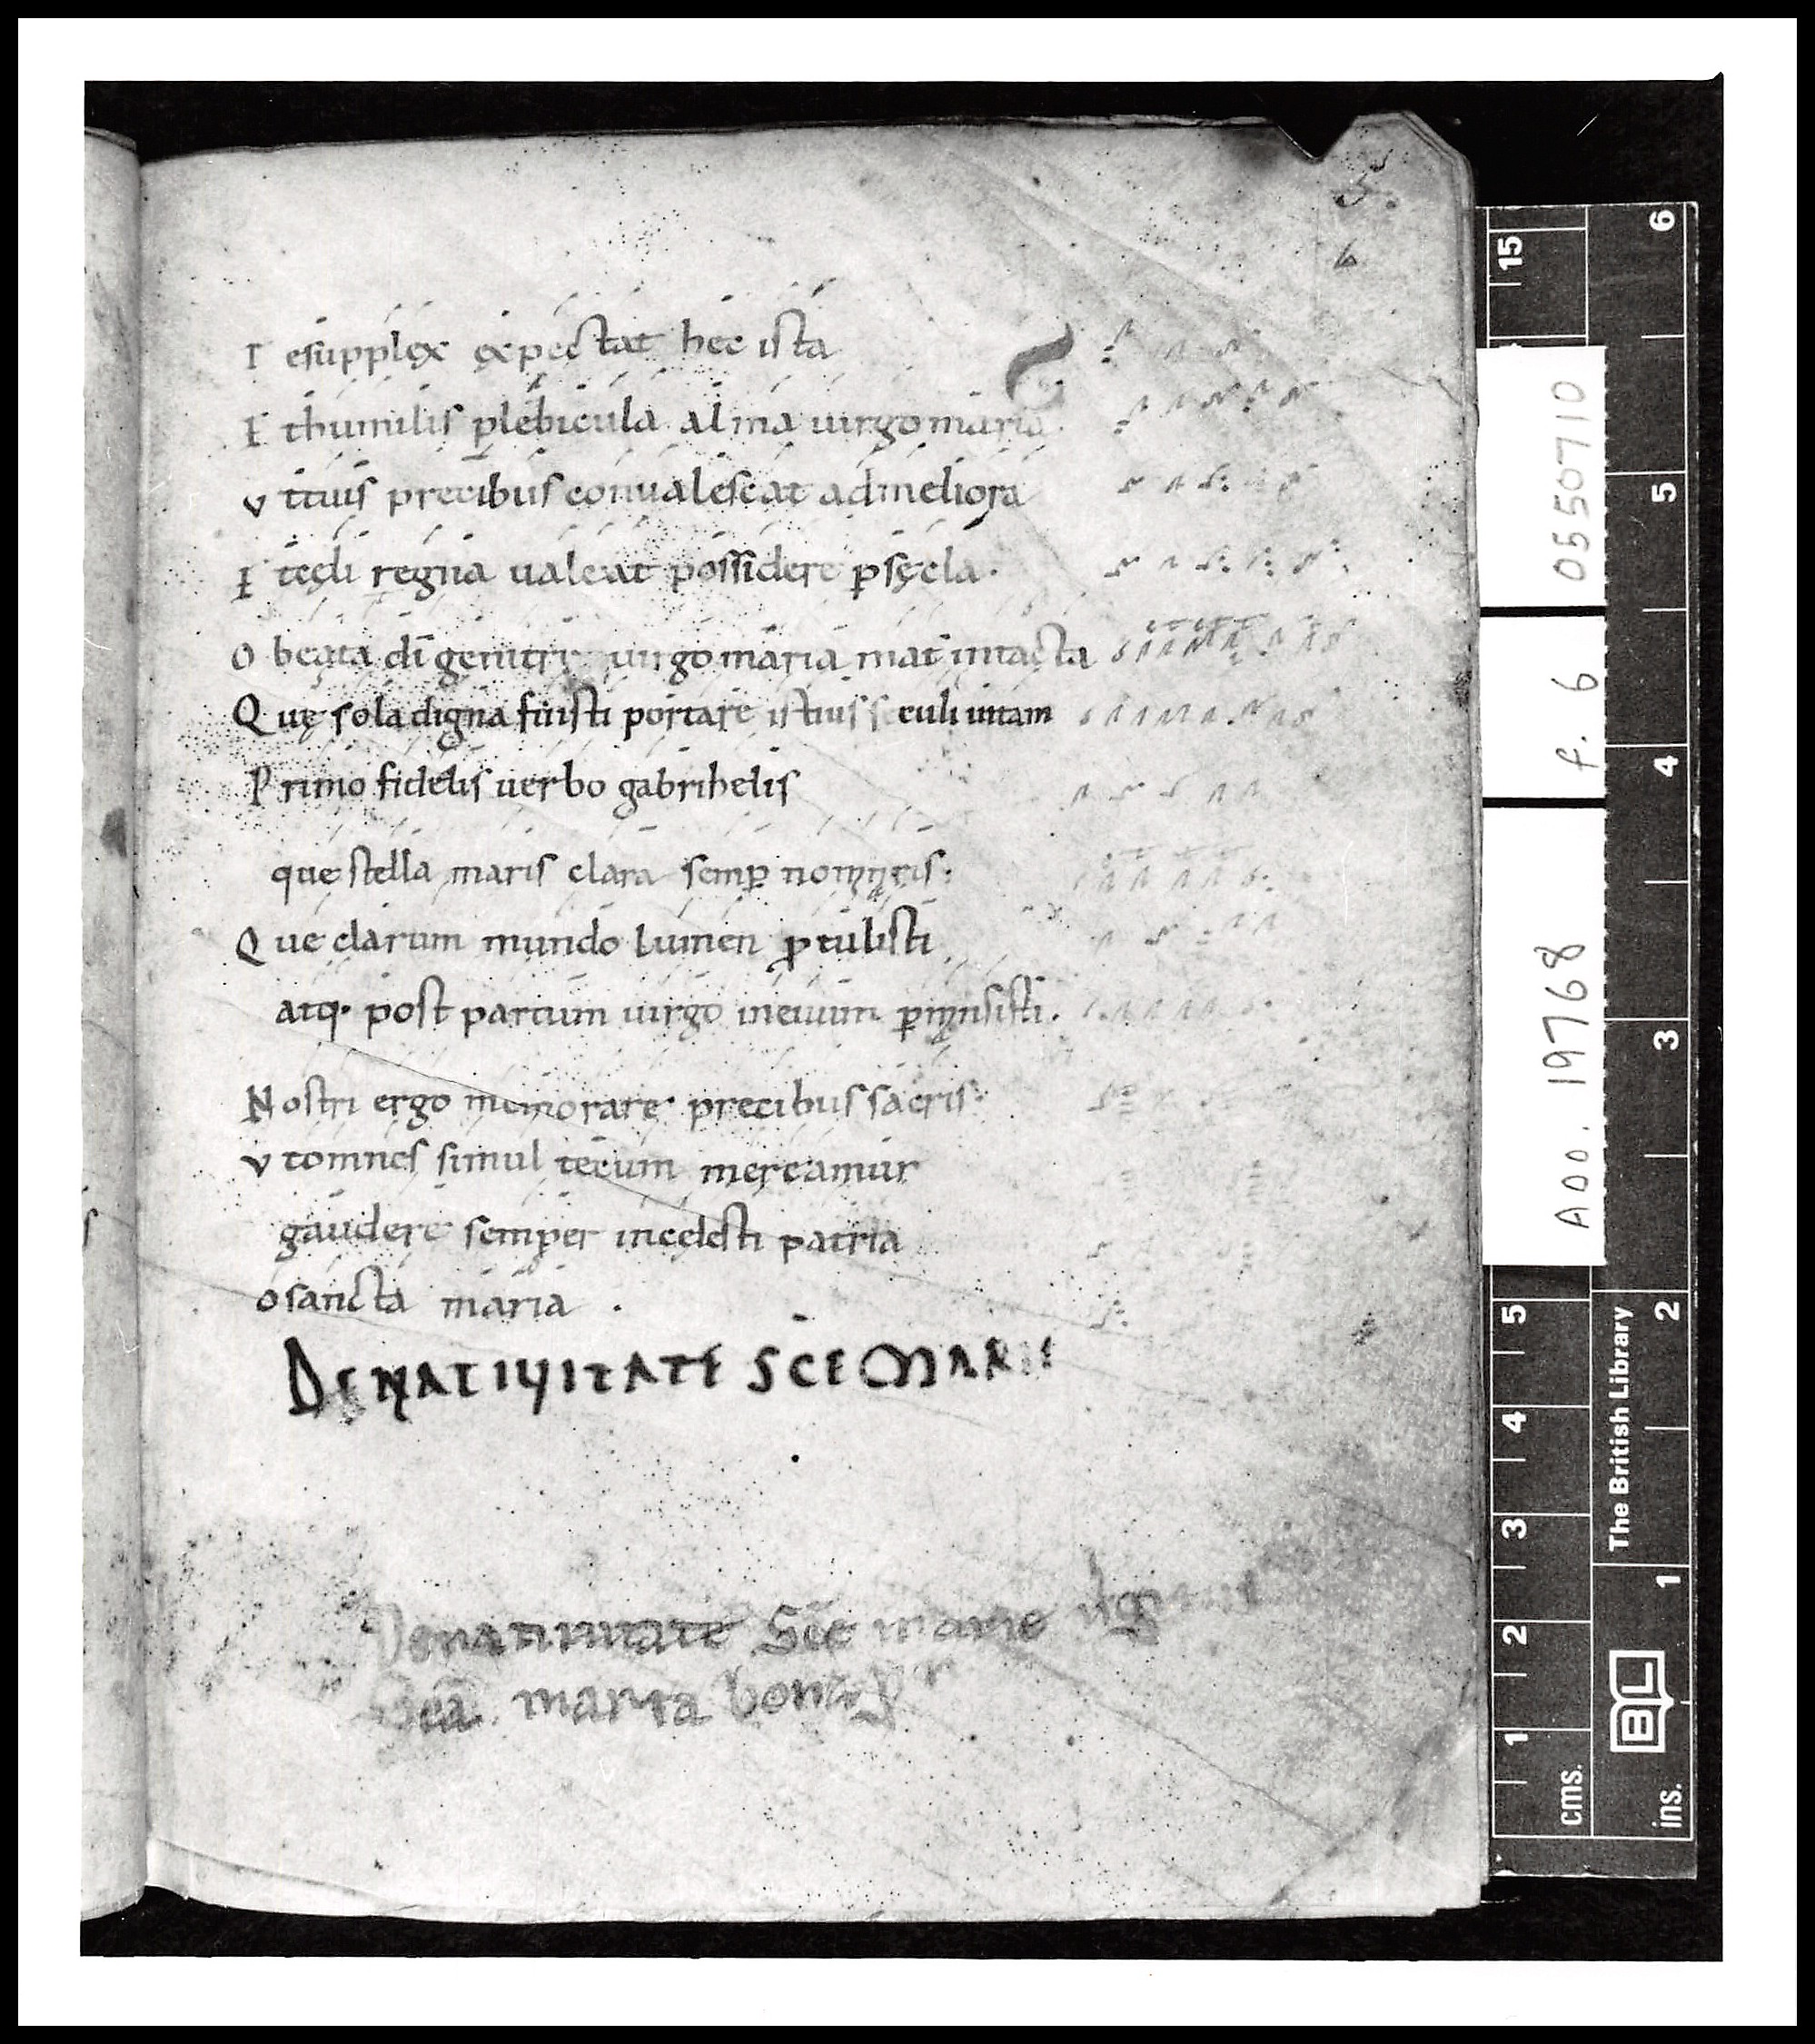 5.
6
T esupplex expectat hec ista
E thumilis plebicula alma uirgo maria.
V ttuis precibus conualescat ad meliora
E tcęli regna ualeat possidere p̱ sęcla.
O beata dī genitrix uirgo maria mat̄ intacta
Q uę sola digna fuisti portare istius seculi uitam
P rimo fidelis uerbo gabrihelis
que stella maris clara semp̱ nominaris:
Q ue clarum mundo lumen p̱tulisti
atq· post partum uirgo ineuum p̱mansisti.
N ostri ergo memorare precibus sacris
V tomnes simul tecum mereamur
gaudere semper incęlesti patria
o sancta maria .
DE NATIVITATE SCĒ MARIE
De natiuitate Scē marie
Scā maria
ADD. 19768
f. 6
0550710
The British Library
BL
cms. 1 2 3 4 5 15
ins. 1 2 3 4 5 6